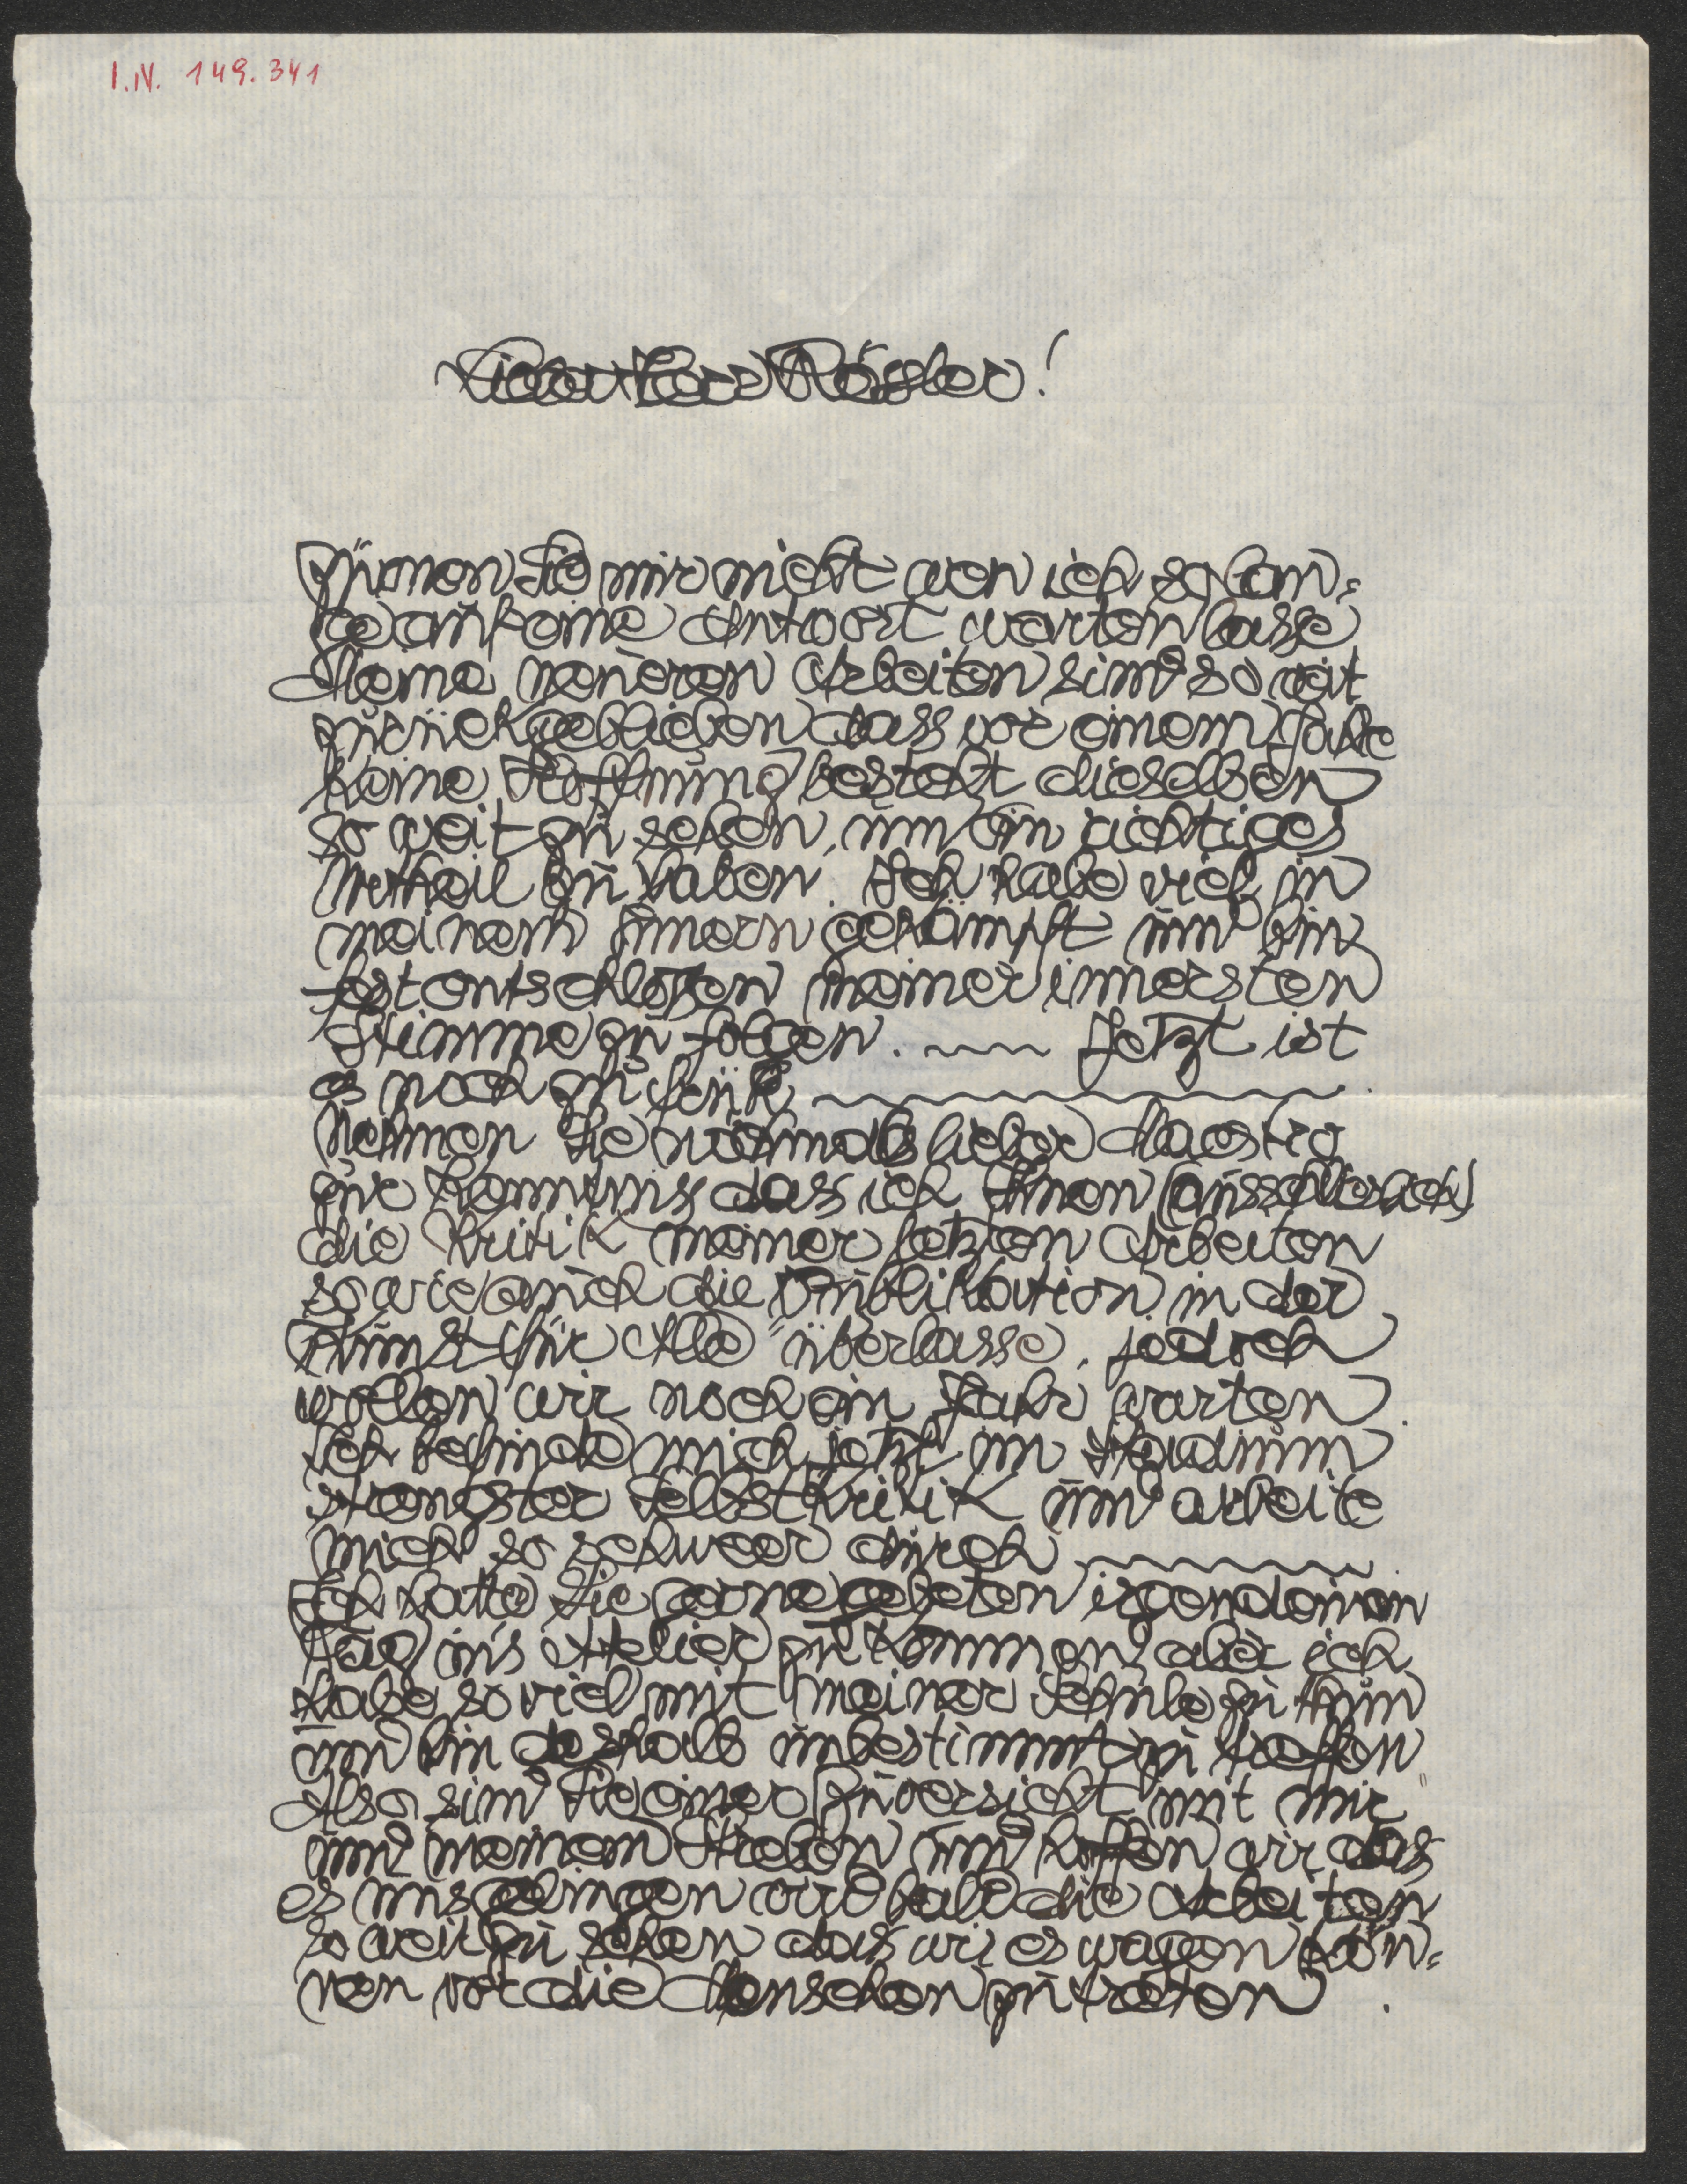 I.N. 149.341
Lieber Herr Rössler!
Zürnen Sie mir nicht wen ich so lan=
ge auf eine Antwort warten lasse
Meine neueren Arbeiten sind so weit
zurückgeblieben dass vor einem Jahre
keine Hoffnung besteht dieselben
so weit zu sehen, um ein richtiges
Urtheil zu haben. Ich habe viel in
meinem Innern gekämpft und bin
fest entschlossen meiner innersten
Stimme zu folgen. ~~~ Jetzt ist
es noch zu früh ~~~~~~.
Nehmen Sie nochmals lieber Maestro
zur Kenntnis dass ich Ihnen (ausschließlich)
die Kritik meiner letzten Arbeiten
so wie auch die Publikation in der
Kunst für Alle" überlasse, jedoch
wollen wir noch ein Jahr warten.
Ich befinde mich jetzt im Stadium
strengster Selbstkritik und arbeite
mich so schweer durch ~~~~~~.
Ich hätte Sie gerne gebeten irgendeinen
Tag in's Atelier zu kommen, aber ich
habe so viel mit meiner Schule zu thun
und bin deshalb unbestimmt zu treffen
Also sind Sie einer Zuversicht mit mir
und meinem Streben und hoffen wir dass
es uns gelingen wird bald die Arbeiten
so weit zu sehen dass wir es wagen kön=
nen vor die Menschen zu treten.